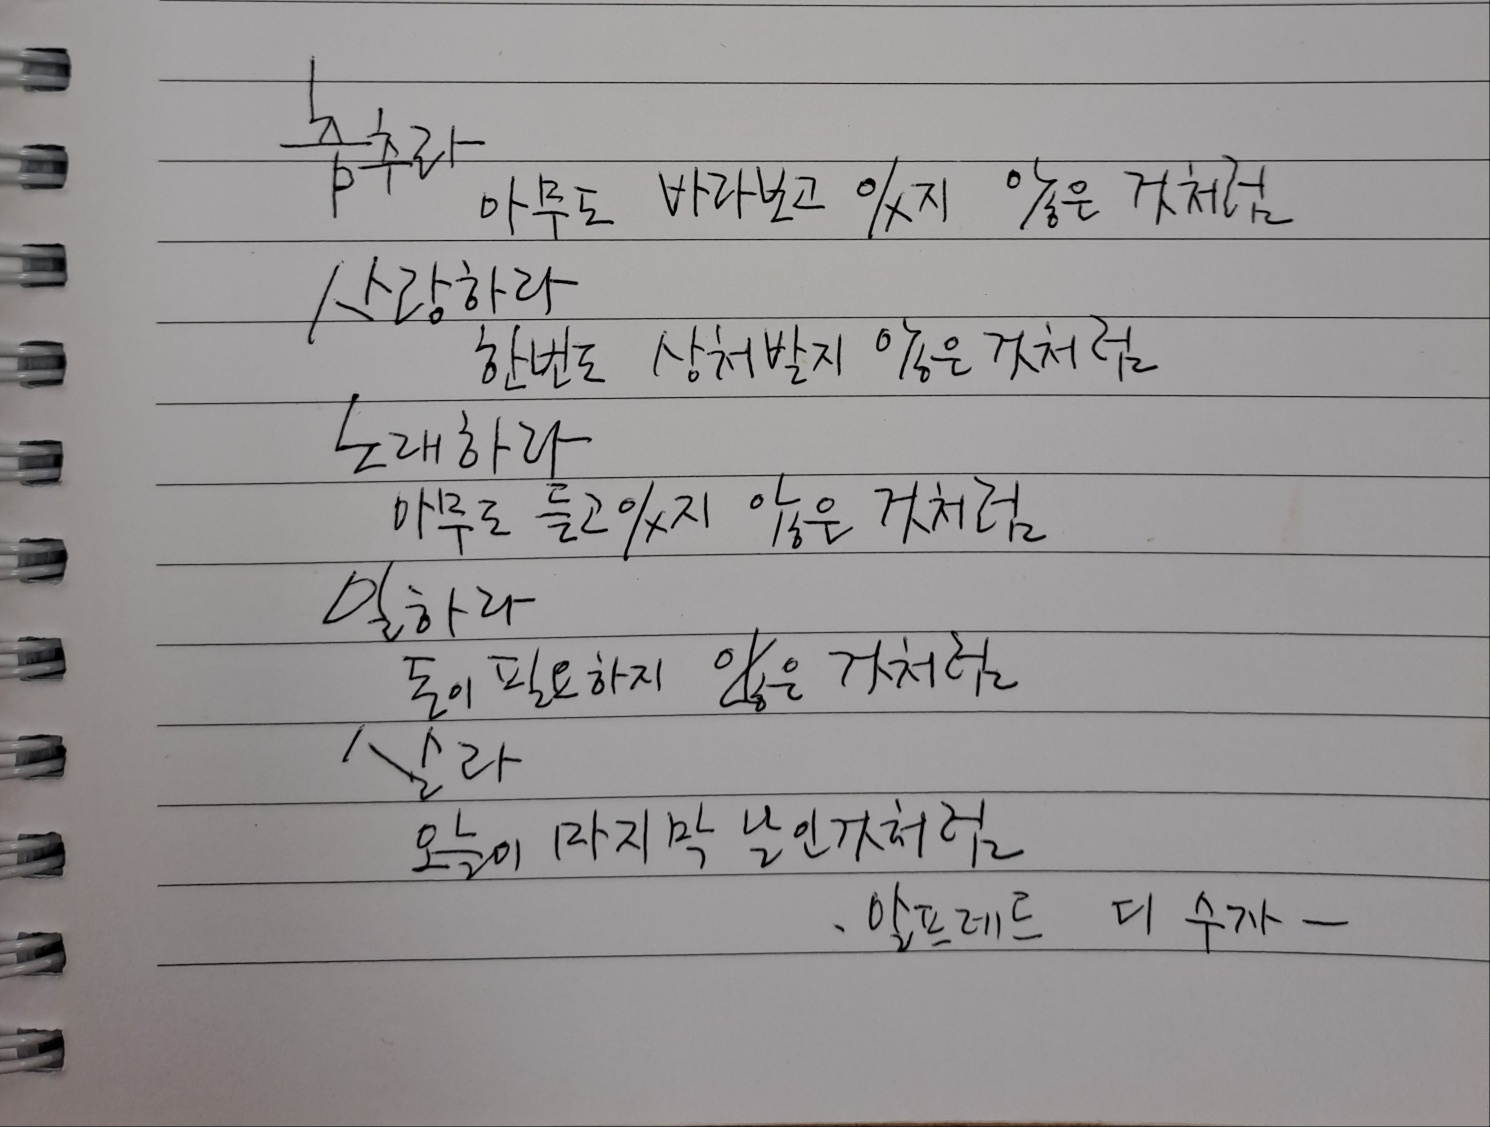 춤추라
아무도 바라보고 있지 않은 것처럼
사랑하라
한번도 상처받지 않은 것처럼
노래하라
아무도 듣고있지 않은 것처럼
일하라
돈이 필요하지 않은 것처럼
살라
오늘이 마지막 날인것처럼
. 알프레드 디 수자 —